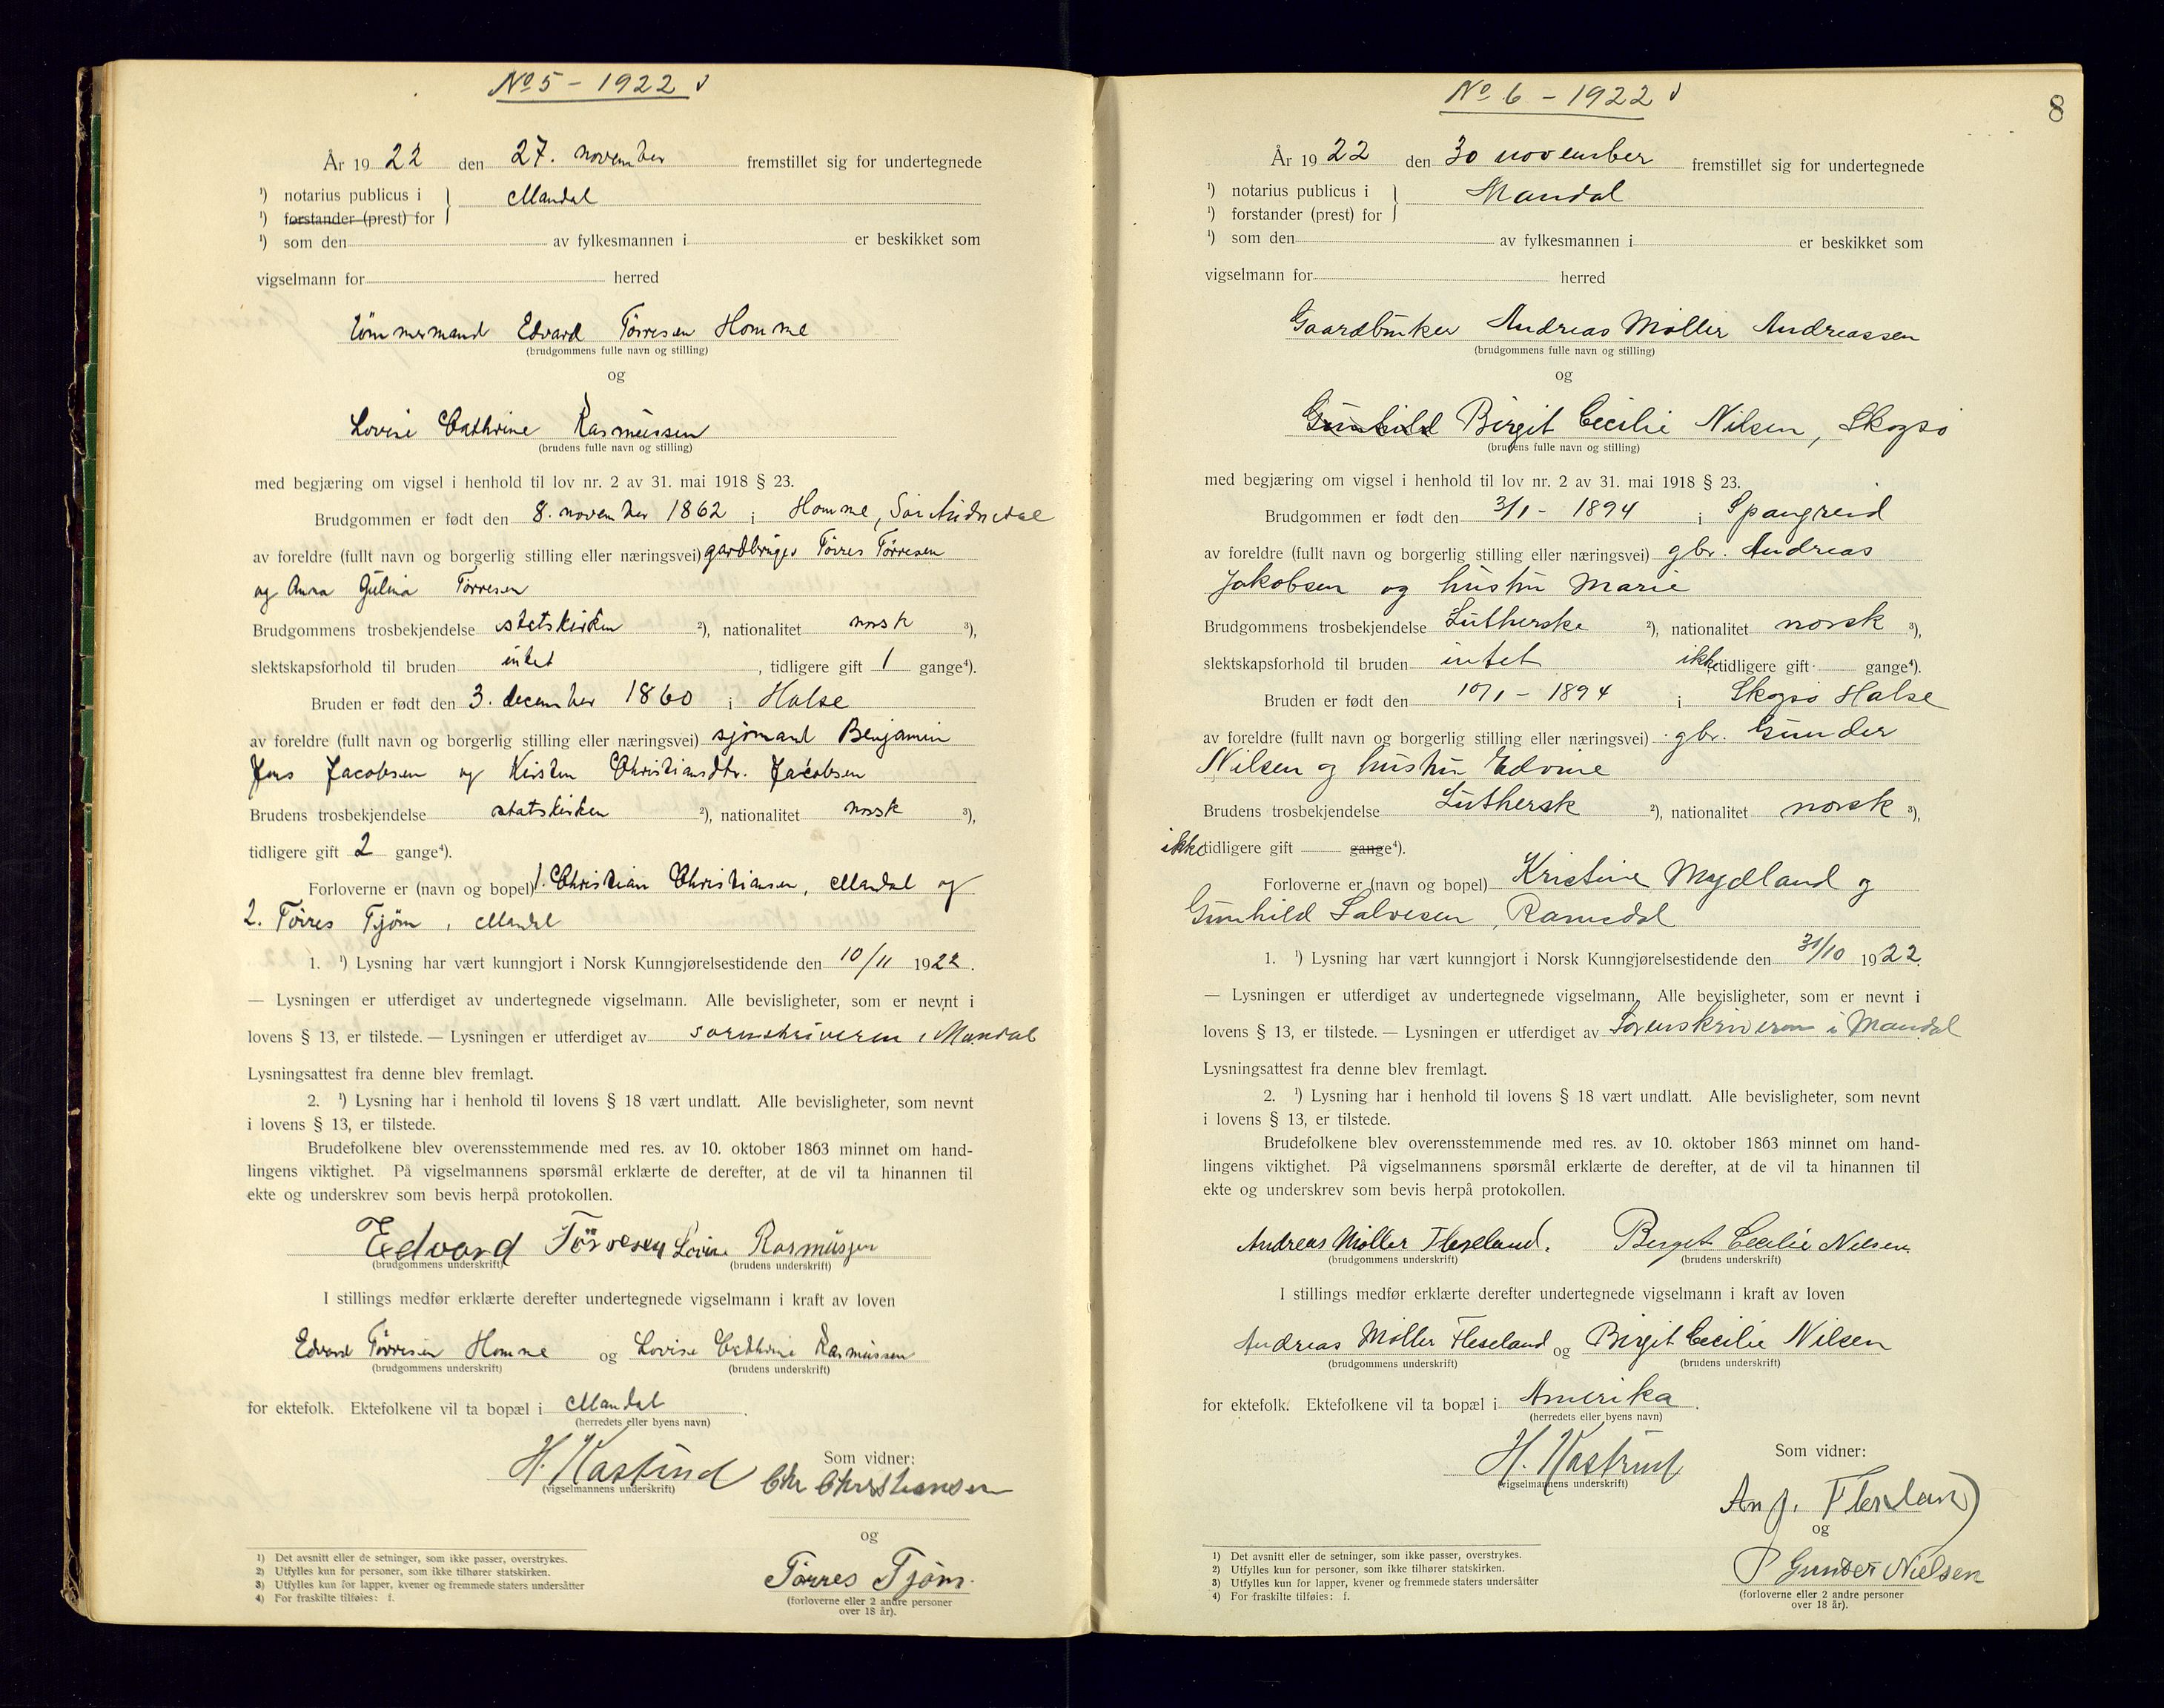 No 5 - 1922
År 19 22 den 27. november fremstillet sig for undertegnede
¹) notarius publicus i } Mandal
¹) forstander (prest) for
¹) som den av fylkesmannen i er beskikket som
vigselmann for herred
tømmermand Edvard Tørresen Homme
(brudgommens fulle navn og stilling)
og
Lovise Cathrine Rasmussen
(brudens fulle navn og stilling)
med begjæring om vigsel i henhold til lov nr. 2 av 31. mai 1918 § 23.
Brudgommen er født den 8. november 1862 i Homme, Sør Audnedal
av foreldre (fullt navn og borgerlig stilling eller næringsvei) gardbruger Tørres Tørresen
og Anna Gulina Tørresen
Brudgommens trosbekjendelse statskirken ²), nationalitet norsk ³),
slektskapsforhold til bruden intet , tidligere gift 1 gange⁴).
Bruden er født den 3. december 1860 i Halse
av foreldre (fullt navn og borgerlig stilling eller næringsvei) sjømand Benjamin
Jens Jacobsen og Kirsten Christiansdtr. Jacobsen
Brudens trosbekjendelse statskirken ²), nationalitet norsk ³),
tidligere gift 2 gange⁴).
Forloverne er (navn og bopel) 1. Christian Christiansen, Mandal og
2. Tørres Tjøm, Mandal
1. ¹) Lysning har vært kunngjort i Norsk Kunngjørelsestidende den 10/11 1922.
— Lysningen er utferdiget av undertegnede vigselmann. Alle bevisligheter, som er nevnt i
lovens § 13, er tilstede. — Lysningen er utferdiget av sorenskriveren i Mandal
Lysningsattest fra denne blev fremlagt.
2. ¹) Lysning har i henhold til lovens § 18 vært undlatt. Alle bevisligheter, som nevnt
i lovens § 13, er tilstede.
Brudefolkene blev overensstemmende med res. av 10. oktober 1863 minnet om hand-
lingens viktighet. På vigselmannens spørsmål erklærte de derefter, at de vil ta hinannen til
ekte og underskrev som bevis herpå protokollen.
Edvard Törresen Lovise Rasmussen
(brudgommens underskrift) (brudens underskrift)
I stillings medfør erklærte derefter undertegnede vigselmann i kraft av loven
Edvard Tørresen Homme og Lovise Cathrine Rasmussen
(brudgommens underskrift) (brudens underskrift)
for ektefolk. Ektefolkene vil ta bopæl i Mandal.
(herredets eller byens navn)
Som vidner:
H. Kastrud Chr Christiansen
(vigselmannens underskrift)
og
Tørres Tjøm.
(forloverne eller 2 andre personer
over 18 år).
1) Det avsnitt eller de setninger, som ikke passer, overstrykes.
2) Utfylles kun for personer, som ikke tilhører statskirken.
3) Utfylles kun for lapper, kvener og fremmede staters undersåtter
4) For fraskilte tilføies: f.
No 6 - 1922
8
År 19 22 den 30 november fremstillet sig for undertegnede
¹) notarius publicus i } Mandal
¹) forstander (prest) for
¹) som den av fylkesmannen i er beskikket som
vigselmann for herred
Gaardbruker Andreas Møller Andreassen
(brudgommens fulle navn og stilling)
og
Gunhild Birgit Cecilie Nilsen, Skogsø
(brudens fulle navn og stilling)
med begjæring om vigsel i henhold til lov nr. 2 av 31. mai 1918 § 23.
Brudgommen er født den 3/1 - 1894 i Spangreid
av foreldre (fullt navn og borgerlig stilling eller næringsvei) gbr. Andreas
Jakobsen og hustru Marie
Brudgommens trosbekjendelse Lutherske ²), nationalitet norsk ³),
slektskapsforhold til bruden intet ikke tidligere gift gange⁴).
Bruden er født den 10/1 - 1894 i Skogsø Halse
av foreldre (fullt navn og borgerlig stilling eller næringsvei) gbr. Gunder
Nilsen og hustru Edvine
Brudens trosbekjendelse Luthersk ²), nationalitet norsk ³),
ikke tidligere gift gange⁴).
Forloverne er (navn og bopel) Kristine Mydland og
Gunhild Salvesen, Ramsdal
1. ¹) Lysning har vært kunngjort i Norsk Kunngjørelsestidende den 31/10 1922.
— Lysningen er utferdiget av undertegnede vigselmann. Alle bevisligheter, som er nevnt i
lovens § 13, er tilstede. — Lysningen er utferdiget av Sorenskriveren i Mandal
Lysningsattest fra denne blev fremlagt.
2. ¹) Lysning har i henhold til lovens § 18 vært undlatt. Alle bevisligheter, som nevnt
i lovens § 13, er tilstede.
Brudefolkene blev overensstemmende med res. av 10. oktober 1863 minnet om hand-
lingens viktighet. På vigselmannens spørsmål erklærte de derefter, at de vil ta hinannen til
ekte og underskrev som bevis herpå protokollen.
Andreas Møller Fleseland. Birgit Cecilie Nilsen.
(brudgommens underskrift) (brudens underskrift)
I stillings medfør erklærte derefter undertegnede vigselmann i kraft av loven
Andreas Møller Fleseland og Birgit Cecilie Nilsen
(brudgommens underskrift) (brudens underskrift)
for ektefolk. Ektefolkene vil ta bopæl i Amerika.
(herredets eller byens navn)
Som vidner:
H. Kastrud
(vigselmannens underskrift)
An J.
og
Gunder Nielsen
(forloverne eller 2 andre personer
over 18 år).
1) Det avsnitt eller de setninger, som ikke passer, overstrykes.
2) Utfylles kun for personer, som ikke tilhører statskirken.
3) Utfylles kun for lapper, kvener og fremmede staters undersåtter
4) For fraskilte tilføies: f.